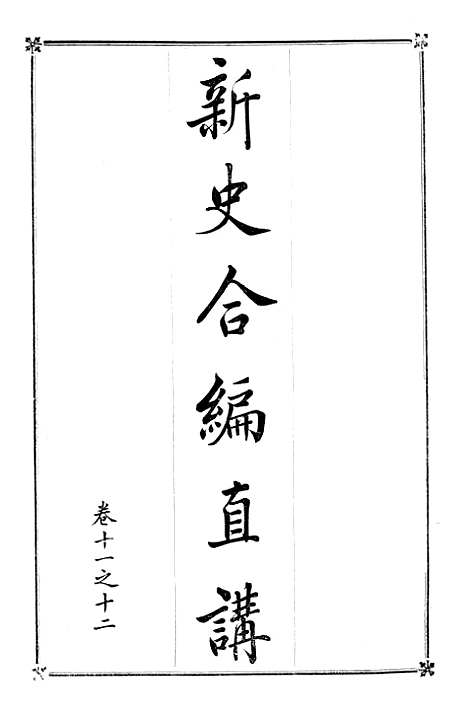 新史合編直講
卷十一之十二